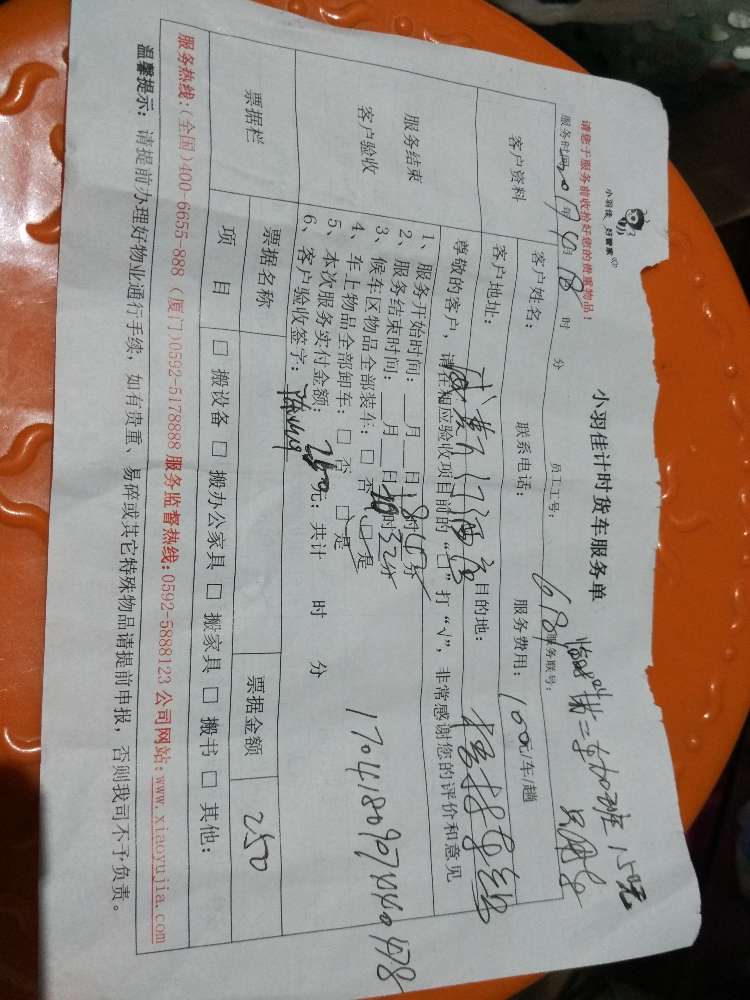 小羽佳 好管家
小羽佳计时货车服务单
请您于服务前收捡好您的贵重物品!
服务时间:2017年4月18 时 分 员工工号:678 服务联号:
加班150元
客户资料
客户姓名: 联系电话: 服务费用:100元/车/趟
客户地址: 目的地:
服务结束
客户验收
尊敬的客户,请在相应验收项目前的“□”打“√”,非常感谢您的评价和意见
1、服务开始时间:__月__日18时15分
2、服务结束时间:__月__日 时32分
3、候车区物品全部装车:□否 □是
4、车上物品全部卸车:□否 □是
5、本次服务实付金额:250元;共计 时 分
6、客户验收签字:
票据栏
票据名称 票据金额 250
项 目 □搬设备 □搬办公家具 □搬家具 □搬书 □其他:
服务热线:(全国)400-6655-888 (厦门)0592-5178888 服务监督热线:0592-5888123 公司网站:www.xiaoyujia.com
温馨提示:请提前办理好物业通行手续,如有贵重、易碎或其它特殊物品请提前申报,否则我司不予负责。